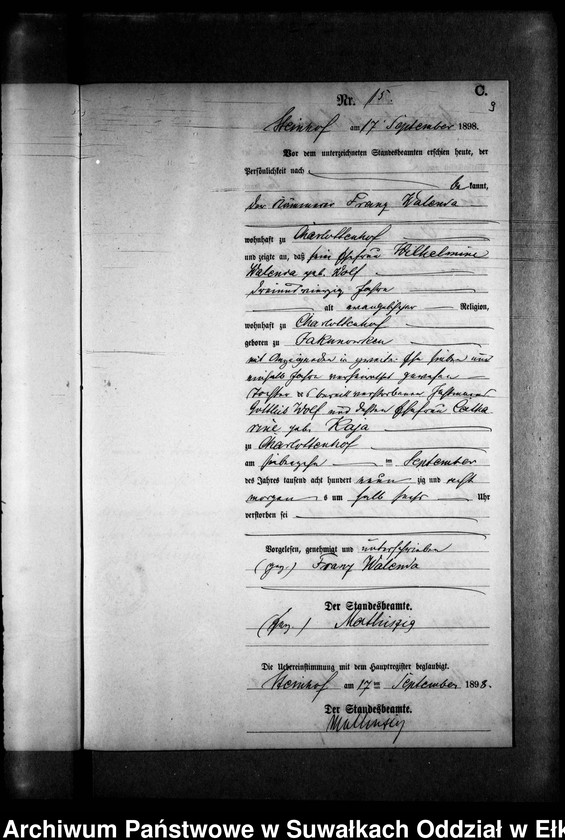 C.
Nr. 15.
9
Steinhof am 17 September 1898.
Vor dem unterzeichneten Standesbeamten erschien heute, der
Persönlichkeit nach
be kannt,
der Kämmerer Franz Walenda
wohnhaft zu Charlottenhof
und zeigte an, daß seine Ehefrau Wilhelmine
Walenda geb. Wolf
dreiundvierzig Jahre
alt evangelischer Religion,
wohnhaft zu Charlottenhof
geboren zu Jakunowken
mit Anzeigenden in zweiter Ehe sieben und
einhalb Jahre verheirathet gewesen
Tochter des bereits verstorbenen
Gottlieb Wolf und dessen Ehefrau Catha
rine geb. Kaja
zu Charlottenhof
am siebzehn ten September
des Jahres tausend acht hundert neun zig und acht
morgen s um halb sechs Uhr
verstorben sei
Vorgelesen, genehmigt und unterschrieben
(gez.) Franz Walenda
Der Standesbeamte.
(gez.)
Die Uebereinstimmung mit dem Hauptregister beglaubigt.
Steinhof am 17 ten September 1898.
Der Standesbeamte.
Archiwum Państwowe w Suwałkach Oddział w Ełk